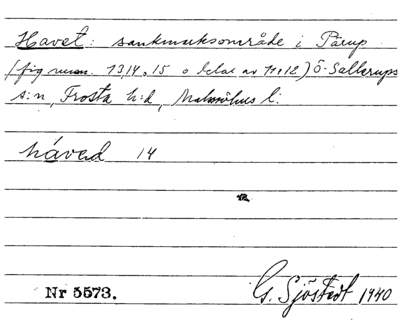 Havet: sankmarksområde i Pårup
(fig num. 13, 14, 15 o delar av 11 o 12) Ö-Sallerups
s:n, Frosta h:d, Malmöhus l.
håved 14
Nr 5573. G. Sjöstedt 1940